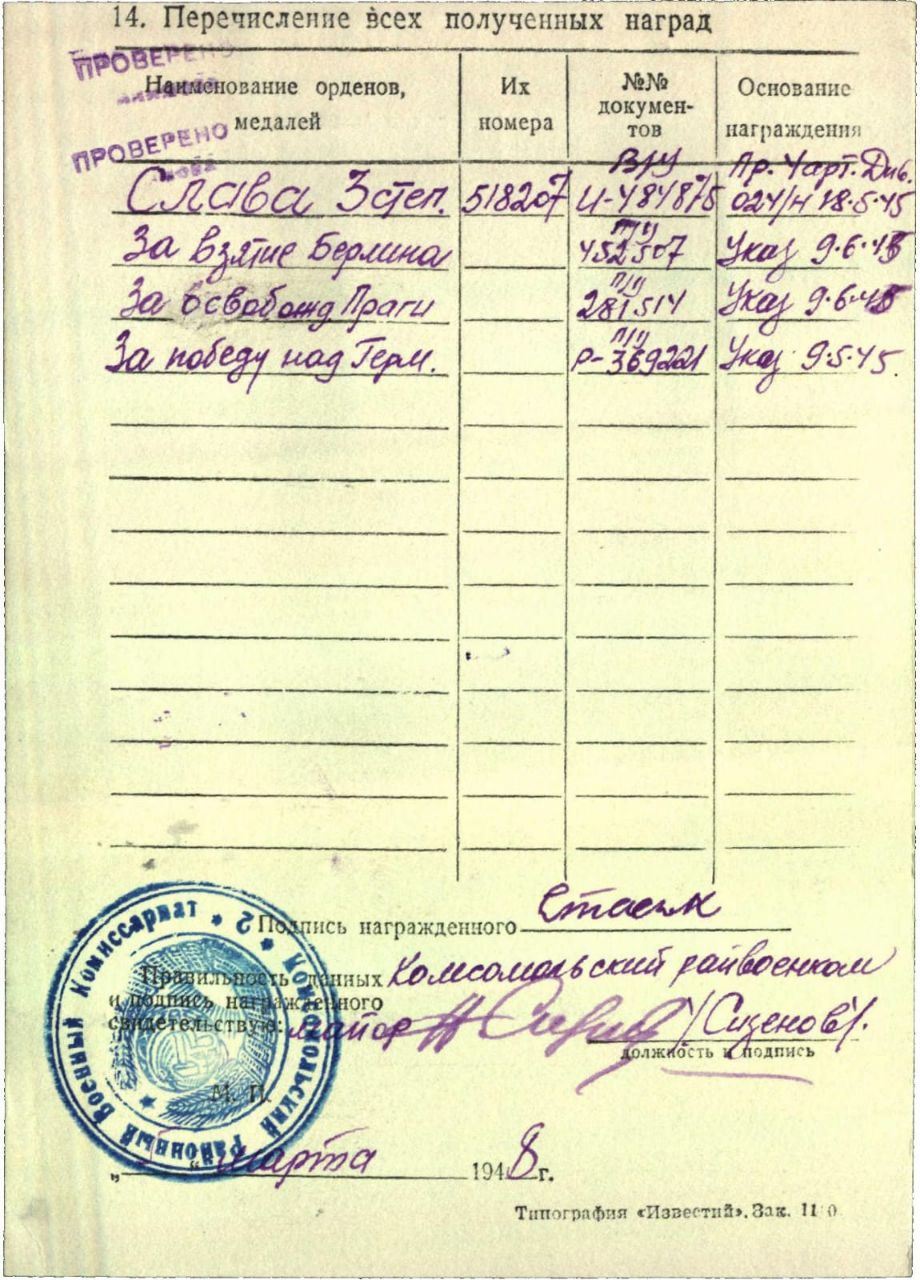 14. Перечисление всех полученных наград
ПРОВЕРЕНО
Наименование орденов, медалей
Их номера
№№ документов
Основание награждения
ПРОВЕРЕНО
В/У Пр. 4 арт. Див.
Слава 3 степ. 518207 И-484875 024/н 18.5.45
П/У
За взятие Берлина 452507 Указ 9.6.45
П/У
За освобожд Праги 281514 Указ 9.6.45
П/У
За победу над Герм. Р-369221 Указ 9.5.45.
Подпись награжденного Стасик
Правильность данных Комсомольский райвоенком
и подпись награжденного
свидетельствую: майор /Сизенов/.
должность и подпись
М. П.
Комсомольский Районный Военный Комиссариат * 2 *
„ “ марта 1948 г.
Типография «Известий». Зак.